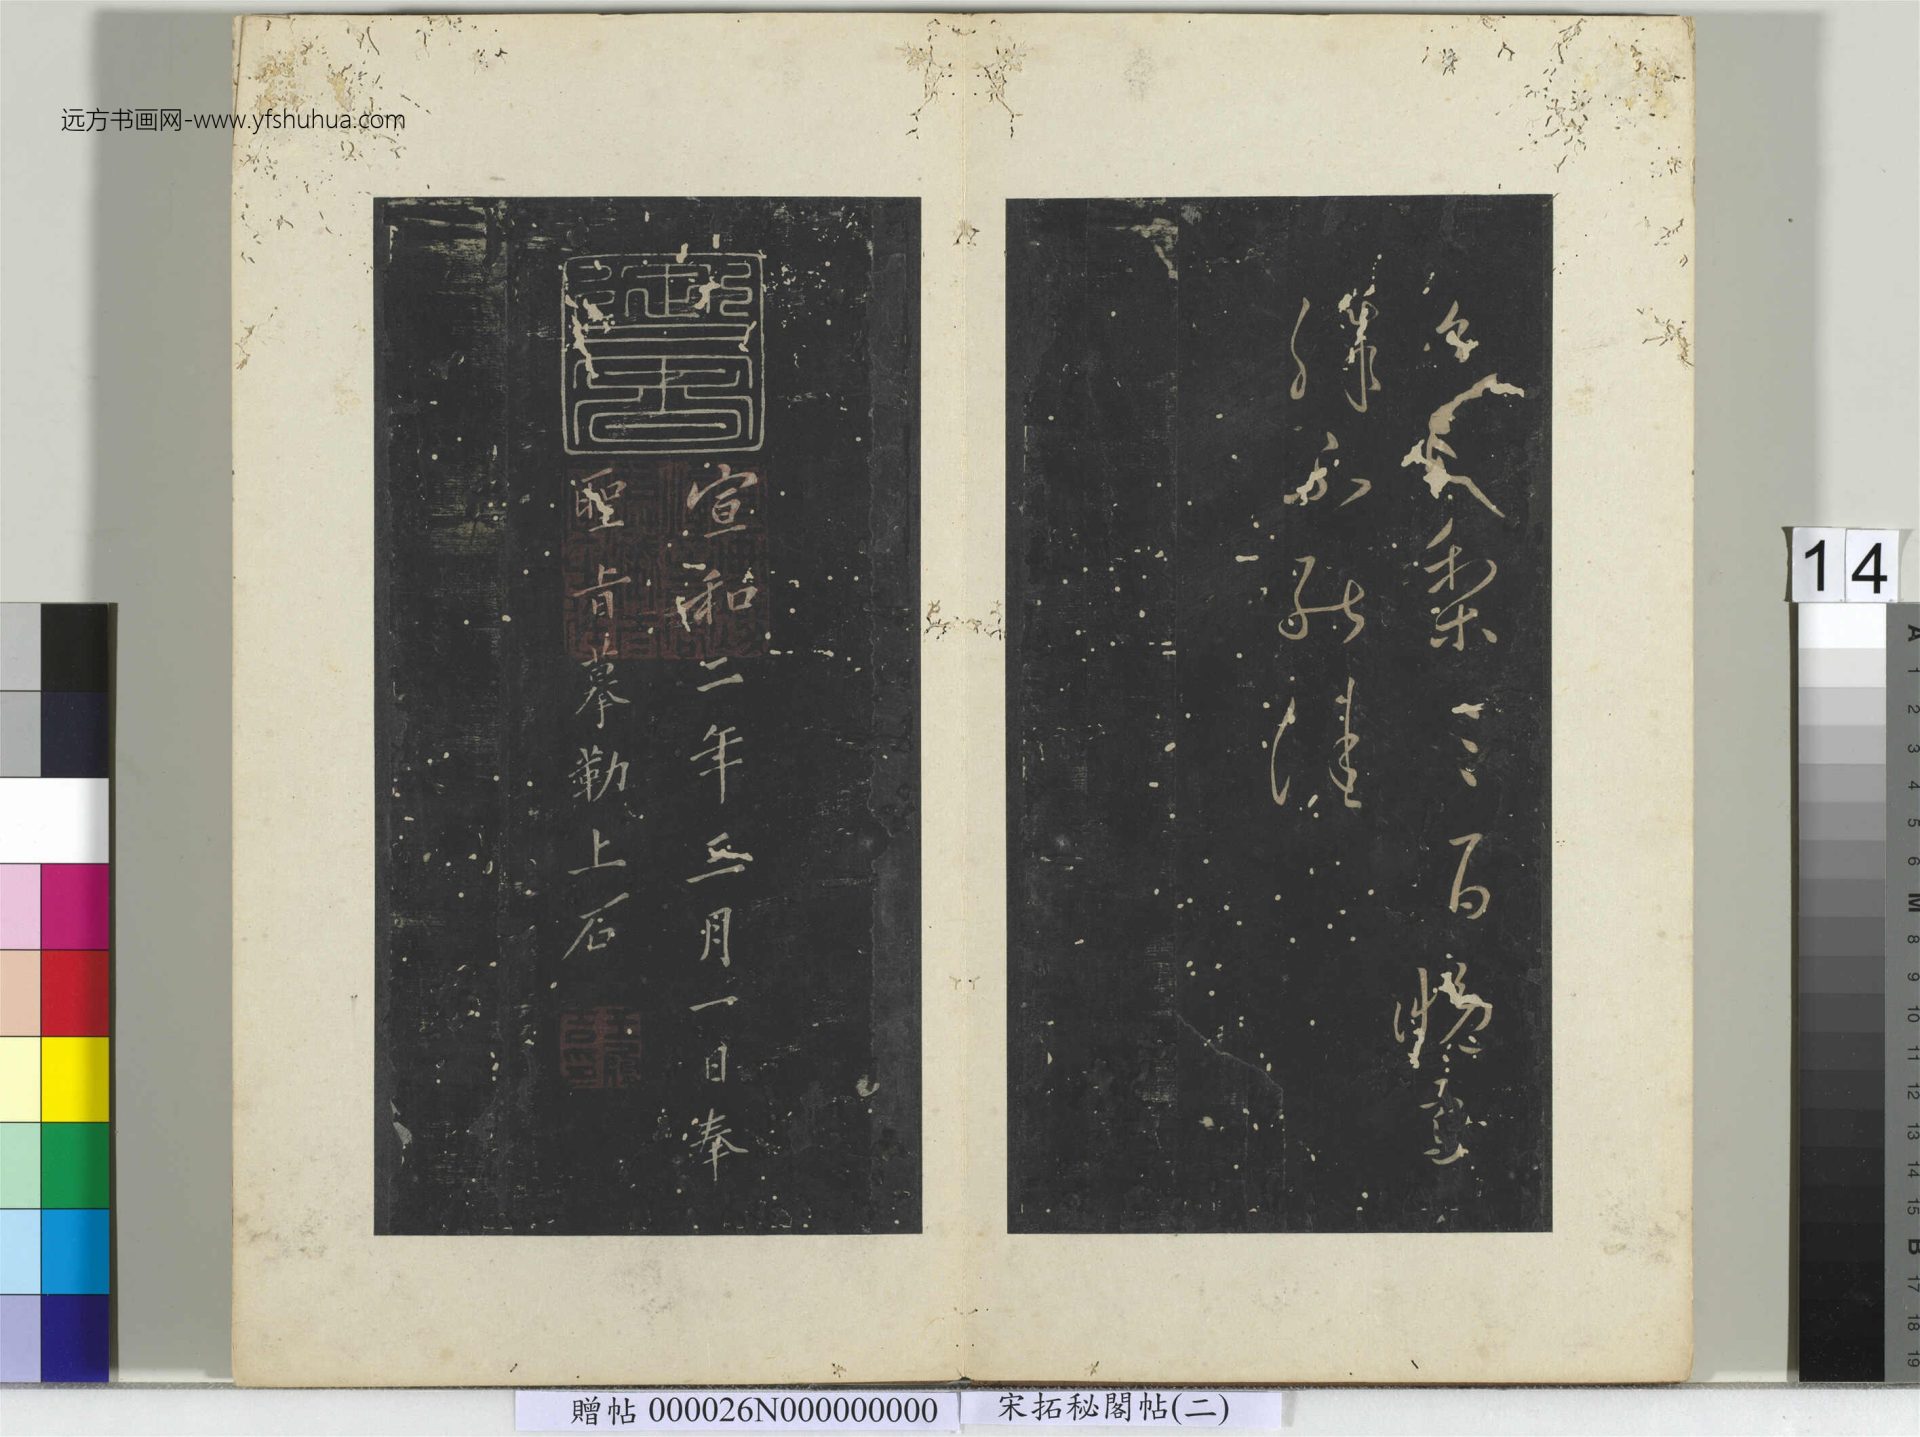 远方书画网-www.yfshuhua.com
今送梨三百晚雪
殊不能佳
宣和二年五月一日奉
聖旨摹勒上石
14
A
1
2
3
4
5
6
M
8
9
10
11
12
13
14
15
B
17
18
19
贈帖 000026N000000000
宋拓秘閣帖(二)